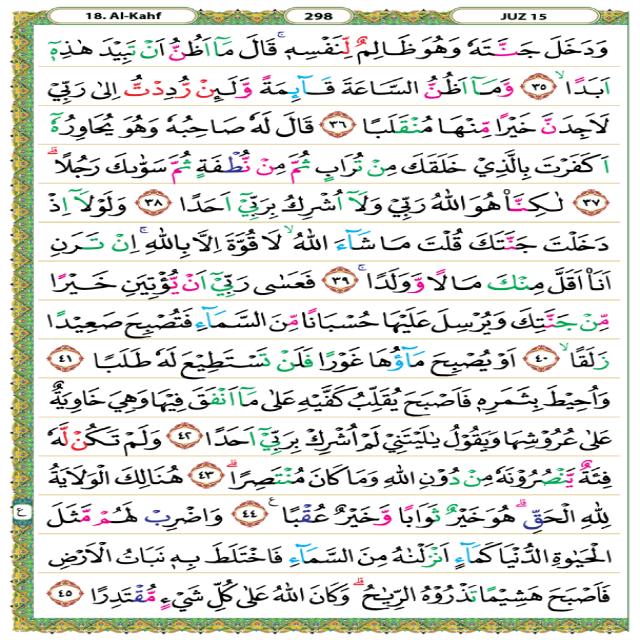 18. Al-Kahf
298
JUZ 15
وَدَخَلَ جَنَّتَهٗ وَهُوَ ظَالِمٌ لِّنَفْسِهٖۚ قَالَ مَآ اَظُنُّ اَنْ تَبِيْدَ هٰذِهٖٓ
اَبَدًاۙ ٣٥ وَّمَآ اَظُنُّ السَّاعَةَ قَاۤىِٕمَةً وَّلَىِٕنْ رُّدِدْتُّ اِلٰى رَبِّيْ
لَاَجِدَنَّ خَيْرًا مِّنْهَا مُنْقَلَبًا ٣٦ قَالَ لَهٗ صَاحِبُهٗ وَهُوَ يُحَاوِرُهٗٓ
اَكَفَرْتَ بِالَّذِيْ خَلَقَكَ مِنْ تُرَابٍ ثُمَّ مِنْ نُّطْفَةٍ ثُمَّ سَوّٰىكَ رَجُلًاۗ
٣٧ لٰكِنَّا۠ هُوَ اللّٰهُ رَبِّيْ وَلَآ اُشْرِكُ بِرَبِّيْٓ اَحَدًا ٣٨ وَلَوْلَآ اِذْ
دَخَلْتَ جَنَّتَكَ قُلْتَ مَا شَاۤءَ اللّٰهُ ۙ لَا قُوَّةَ اِلَّا بِاللّٰهِ ۚاِنْ تَرَنِ
اَنَا۠ اَقَلَّ مِنْكَ مَالًا وَّوَلَدًاۚ ٣٩ فَعَسٰى رَبِّيْٓ اَنْ يُّؤْتِيَنِ خَيْرًا
مِّنْ جَنَّتِكَ وَيُرْسِلَ عَلَيْهَا حُسْبَانًا مِّنَ السَّمَاۤءِ فَتُصْبِحَ صَعِيْدًا
زَلَقًاۙ ٤٠ اَوْ يُصْبِحَ مَاۤؤُهَا غَوْرًا فَلَنْ تَسْتَطِيْعَ لَهٗ طَلَبًا ٤١
وَاُحِيْطَ بِثَمَرِهٖ فَاَصْبَحَ يُقَلِّبُ كَفَّيْهِ عَلٰى مَآ اَنْفَقَ فِيْهَا وَهِيَ خَاوِيَةٌ
عَلٰى عُرُوْشِهَا وَيَقُوْلُ يٰلَيْتَنِيْ لَمْ اُشْرِكْ بِرَبِّيْٓ اَحَدًا ٤٢ وَلَمْ تَكُنْ لَّهٗ
فِئَةٌ يَّنْصُرُوْنَهٗ مِنْ دُوْنِ اللّٰهِ وَمَا كَانَ مُنْتَصِرًاۗ ٤٣ هُنَالِكَ الْوَلَايَةُ
لِلّٰهِ الْحَقِّۗ هُوَ خَيْرٌ ثَوَابًا وَّخَيْرٌ عُقْبًا ࣖ ٤٤ وَاضْرِبْ لَهُمْ مَّثَلَ
ع
الْحَيٰوةِ الدُّنْيَا كَمَاۤءٍ اَنْزَلْنٰهُ مِنَ السَّمَاۤءِ فَاخْتَلَطَ بِهٖ نَبَاتُ الْاَرْضِ
فَاَصْبَحَ هَشِيْمًا تَذْرُوْهُ الرِّيٰحُ ۗوَكَانَ اللّٰهُ عَلٰى كُلِّ شَيْءٍ مُّقْتَدِرًا ٤٥